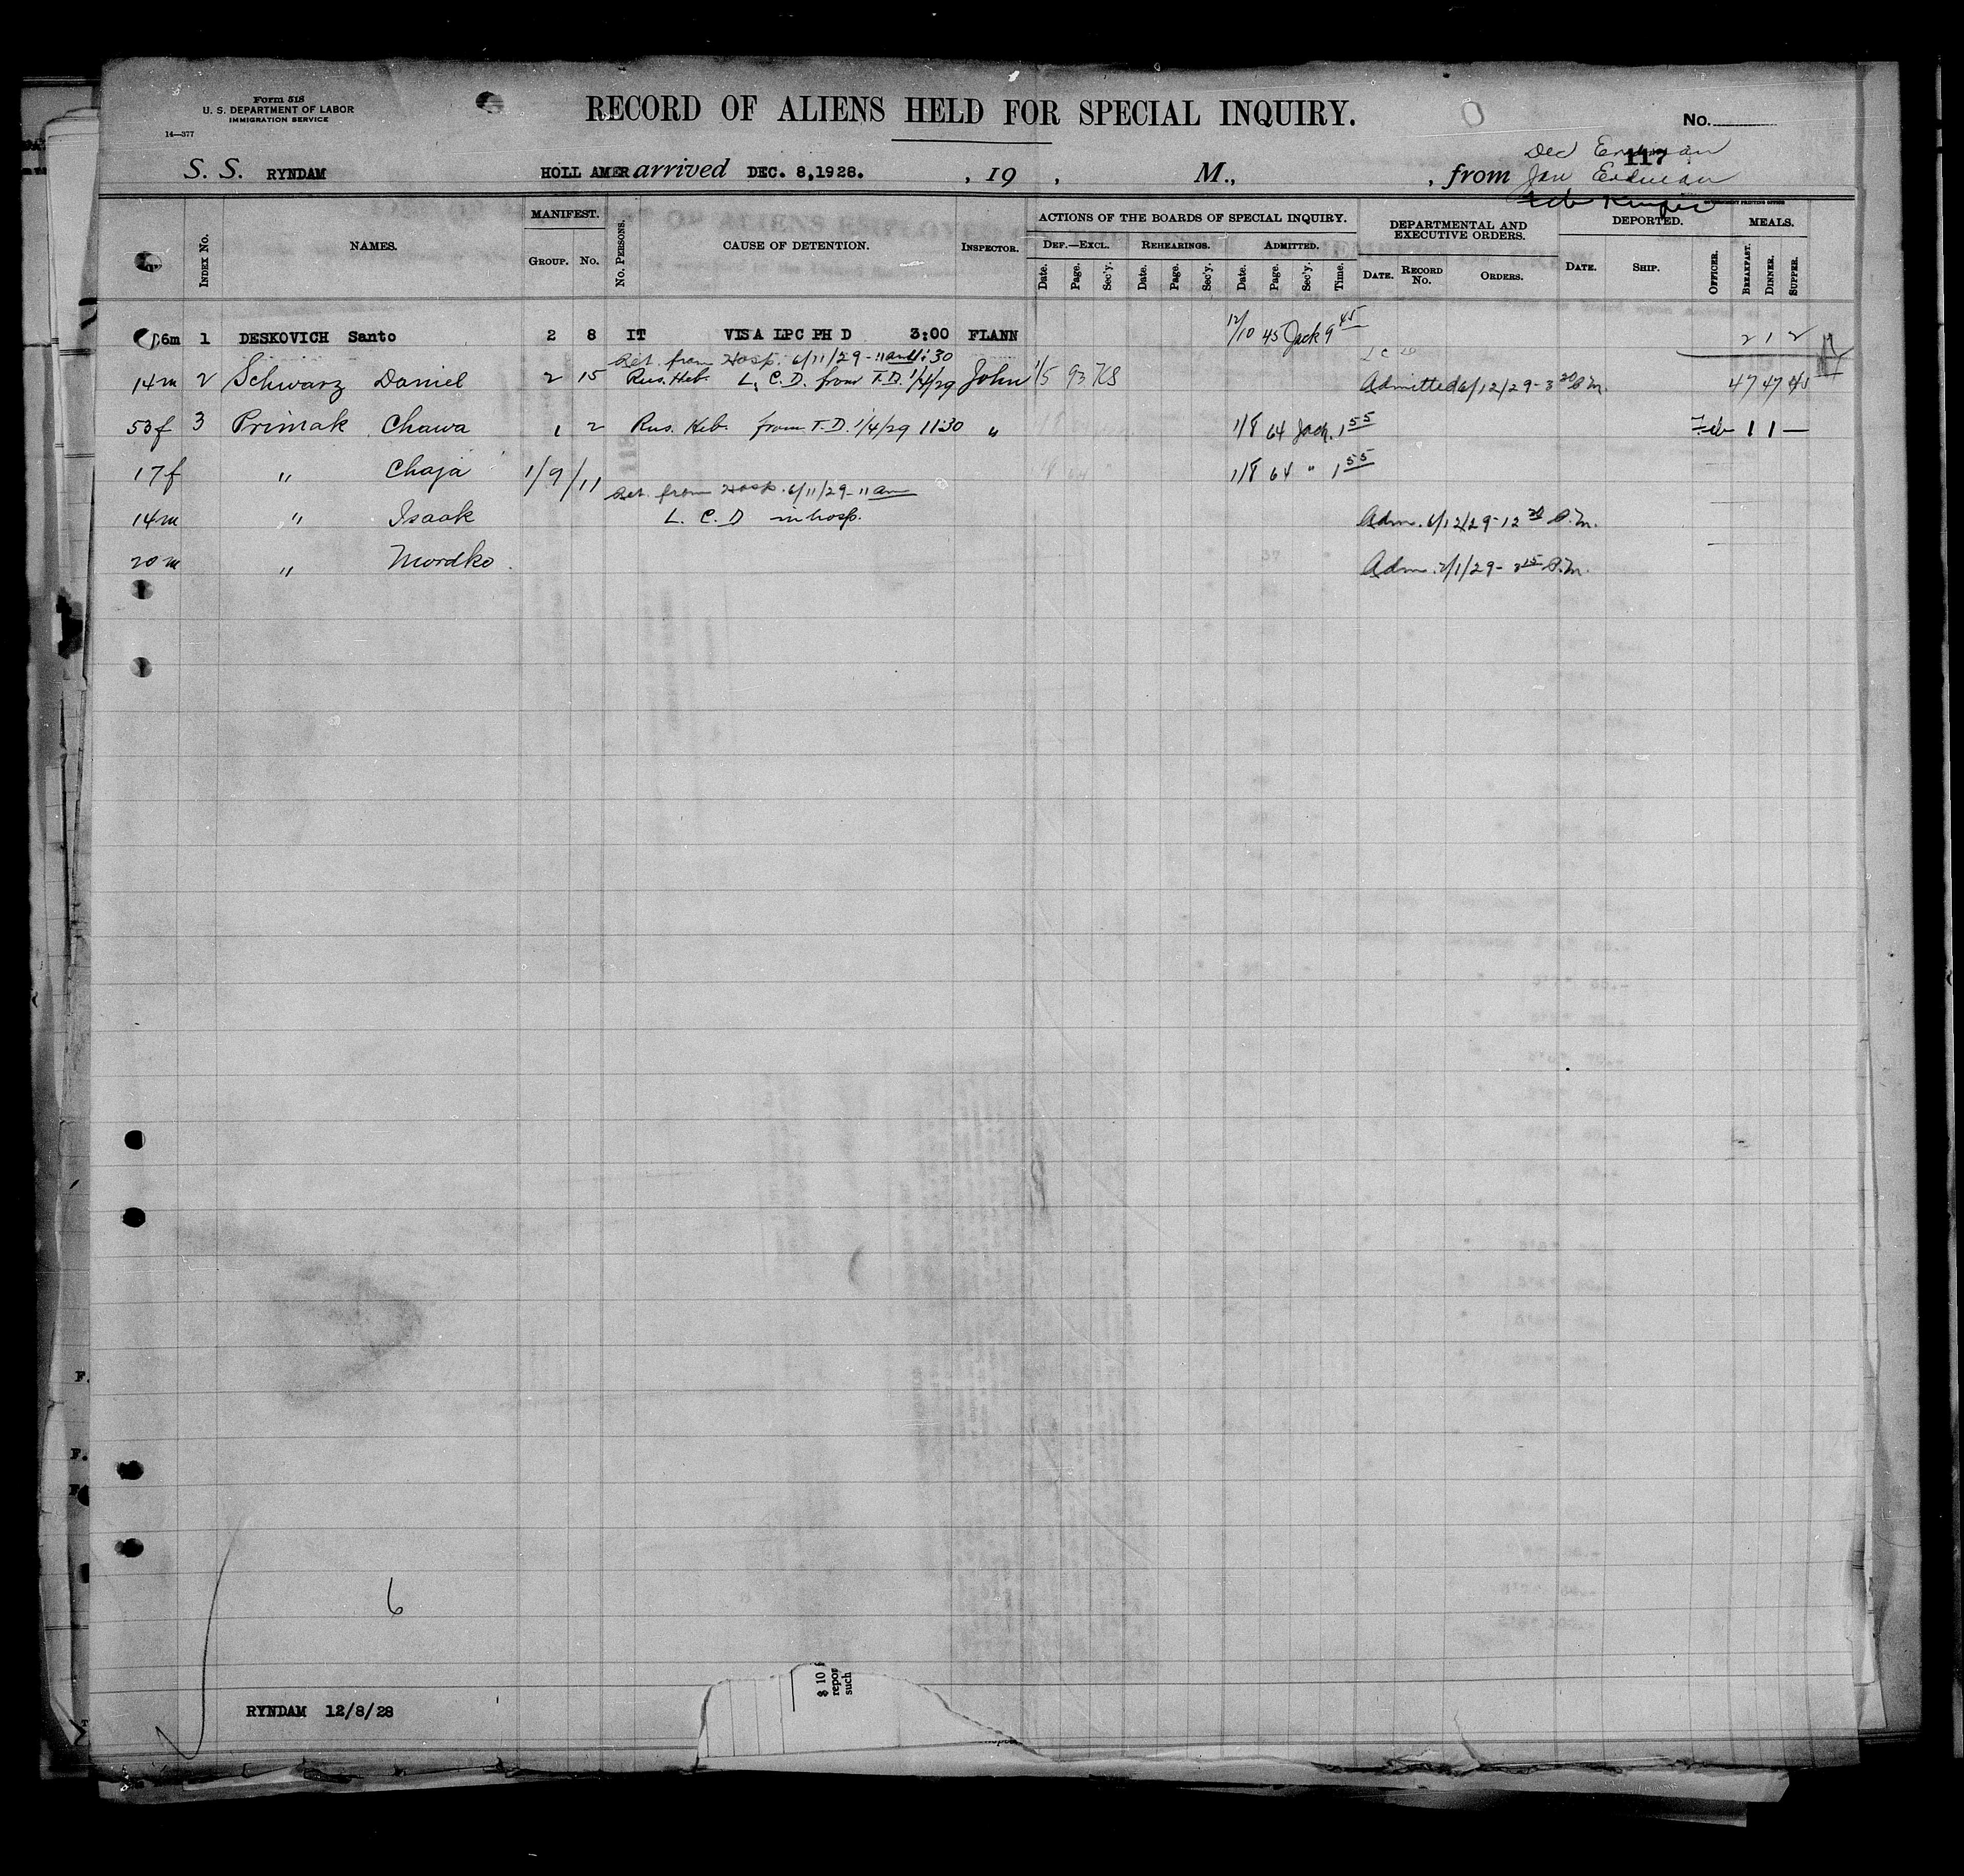 Form 518
U. S. DEPARTMENT OF LABOR
IMMIGRATION SERVICE
14—377
RECORD OF ALIENS HELD FOR SPECIAL INQUIRY.
No.
117
S. S. RYNDAM HOLL AMER arrived DEC. 8,1928. , 19 , M., , from
Dec Erdman
Jan Erdman
Feb
GOVERNMENT PRINTING OFFICE
INDEX NO. NAMES. MANIFEST. GROUP. NO. NO. PERSONS. CAUSE OF DETENTION. INSPECTOR.
ACTIONS OF THE BOARDS OF SPECIAL INQUIRY.
DEF.—EXCL. REHEARINGS. ADMITTED.
Date. Page. Sec'y. Date. Page. Sec'y. Date. Page. Sec'y. Time.
DEPARTMENTAL AND EXECUTIVE ORDERS.
DATE. RECORD NO. ORDERS.
DEPORTED.
DATE. SHIP. OFFICER.
MEALS.
BREAKFAST. DINNER. SUPPER.
6m 1 DESKOVICH Santo 2 8 IT VISA LPC PH D 3:00 FLANN 12/10 45 Jack 9 45 2 1 2
Ret. from Hosp. 6/11/29 - 11 am 11:30
14m 2 Schwarz Daniel 2 15 Rus. Heb. L. C. D. from T. D. 1/4/29 John 1/5 93 KS Admitted 6/12/29 - 3 30 P.M. 47 47 45
53f 3 Primak Chawa 1 2 Rus. Heb. from T. D. 1/4/29 11:30 " 1/8 64 Jack. 1 55 Feb 1 1 —
17f " Chaja 1/9/11 1/8 64 " 1 55
Ret. from Hosp. 6/11/29 - 11 am
14m " Isaak L. C. D in hosp. Adm. 6/12/29 - 12 30 P.M.
20m " Mordko Adm. 2/1/29 - 2 15 P.M.
6
$ 10
repor
such
RYNDAM 12/8/28